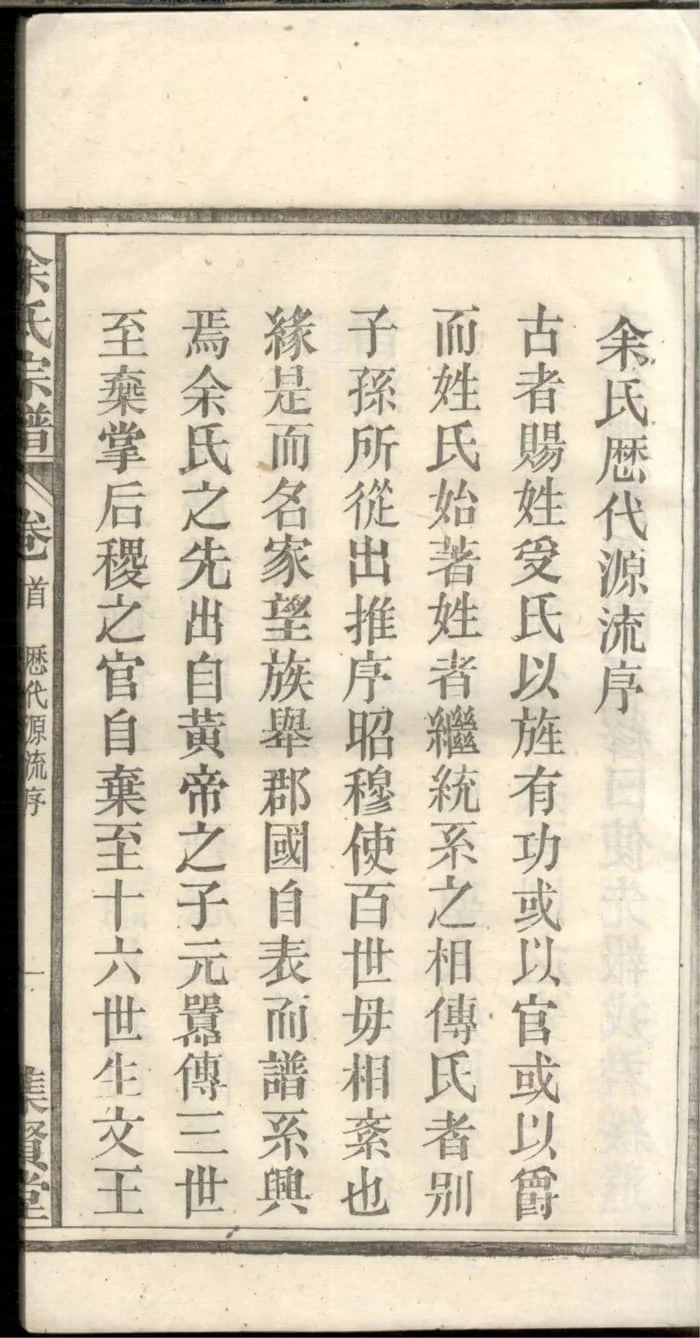 余氏歷代源流序
古者賜姓受氏以旌有功或以官或以爵
而姓氏始著姓者繼統系之相傳氏者別
子孫所從出推序昭穆使百世毋相紊也
緣是而名家望族舉郡國自表而譜系興
焉余氏之先出自黃帝之子元囂傳三世
至棄掌后稷之官自棄至十六世生文王
余氏宗譜
卷首
歷代源流序
一
集賢堂